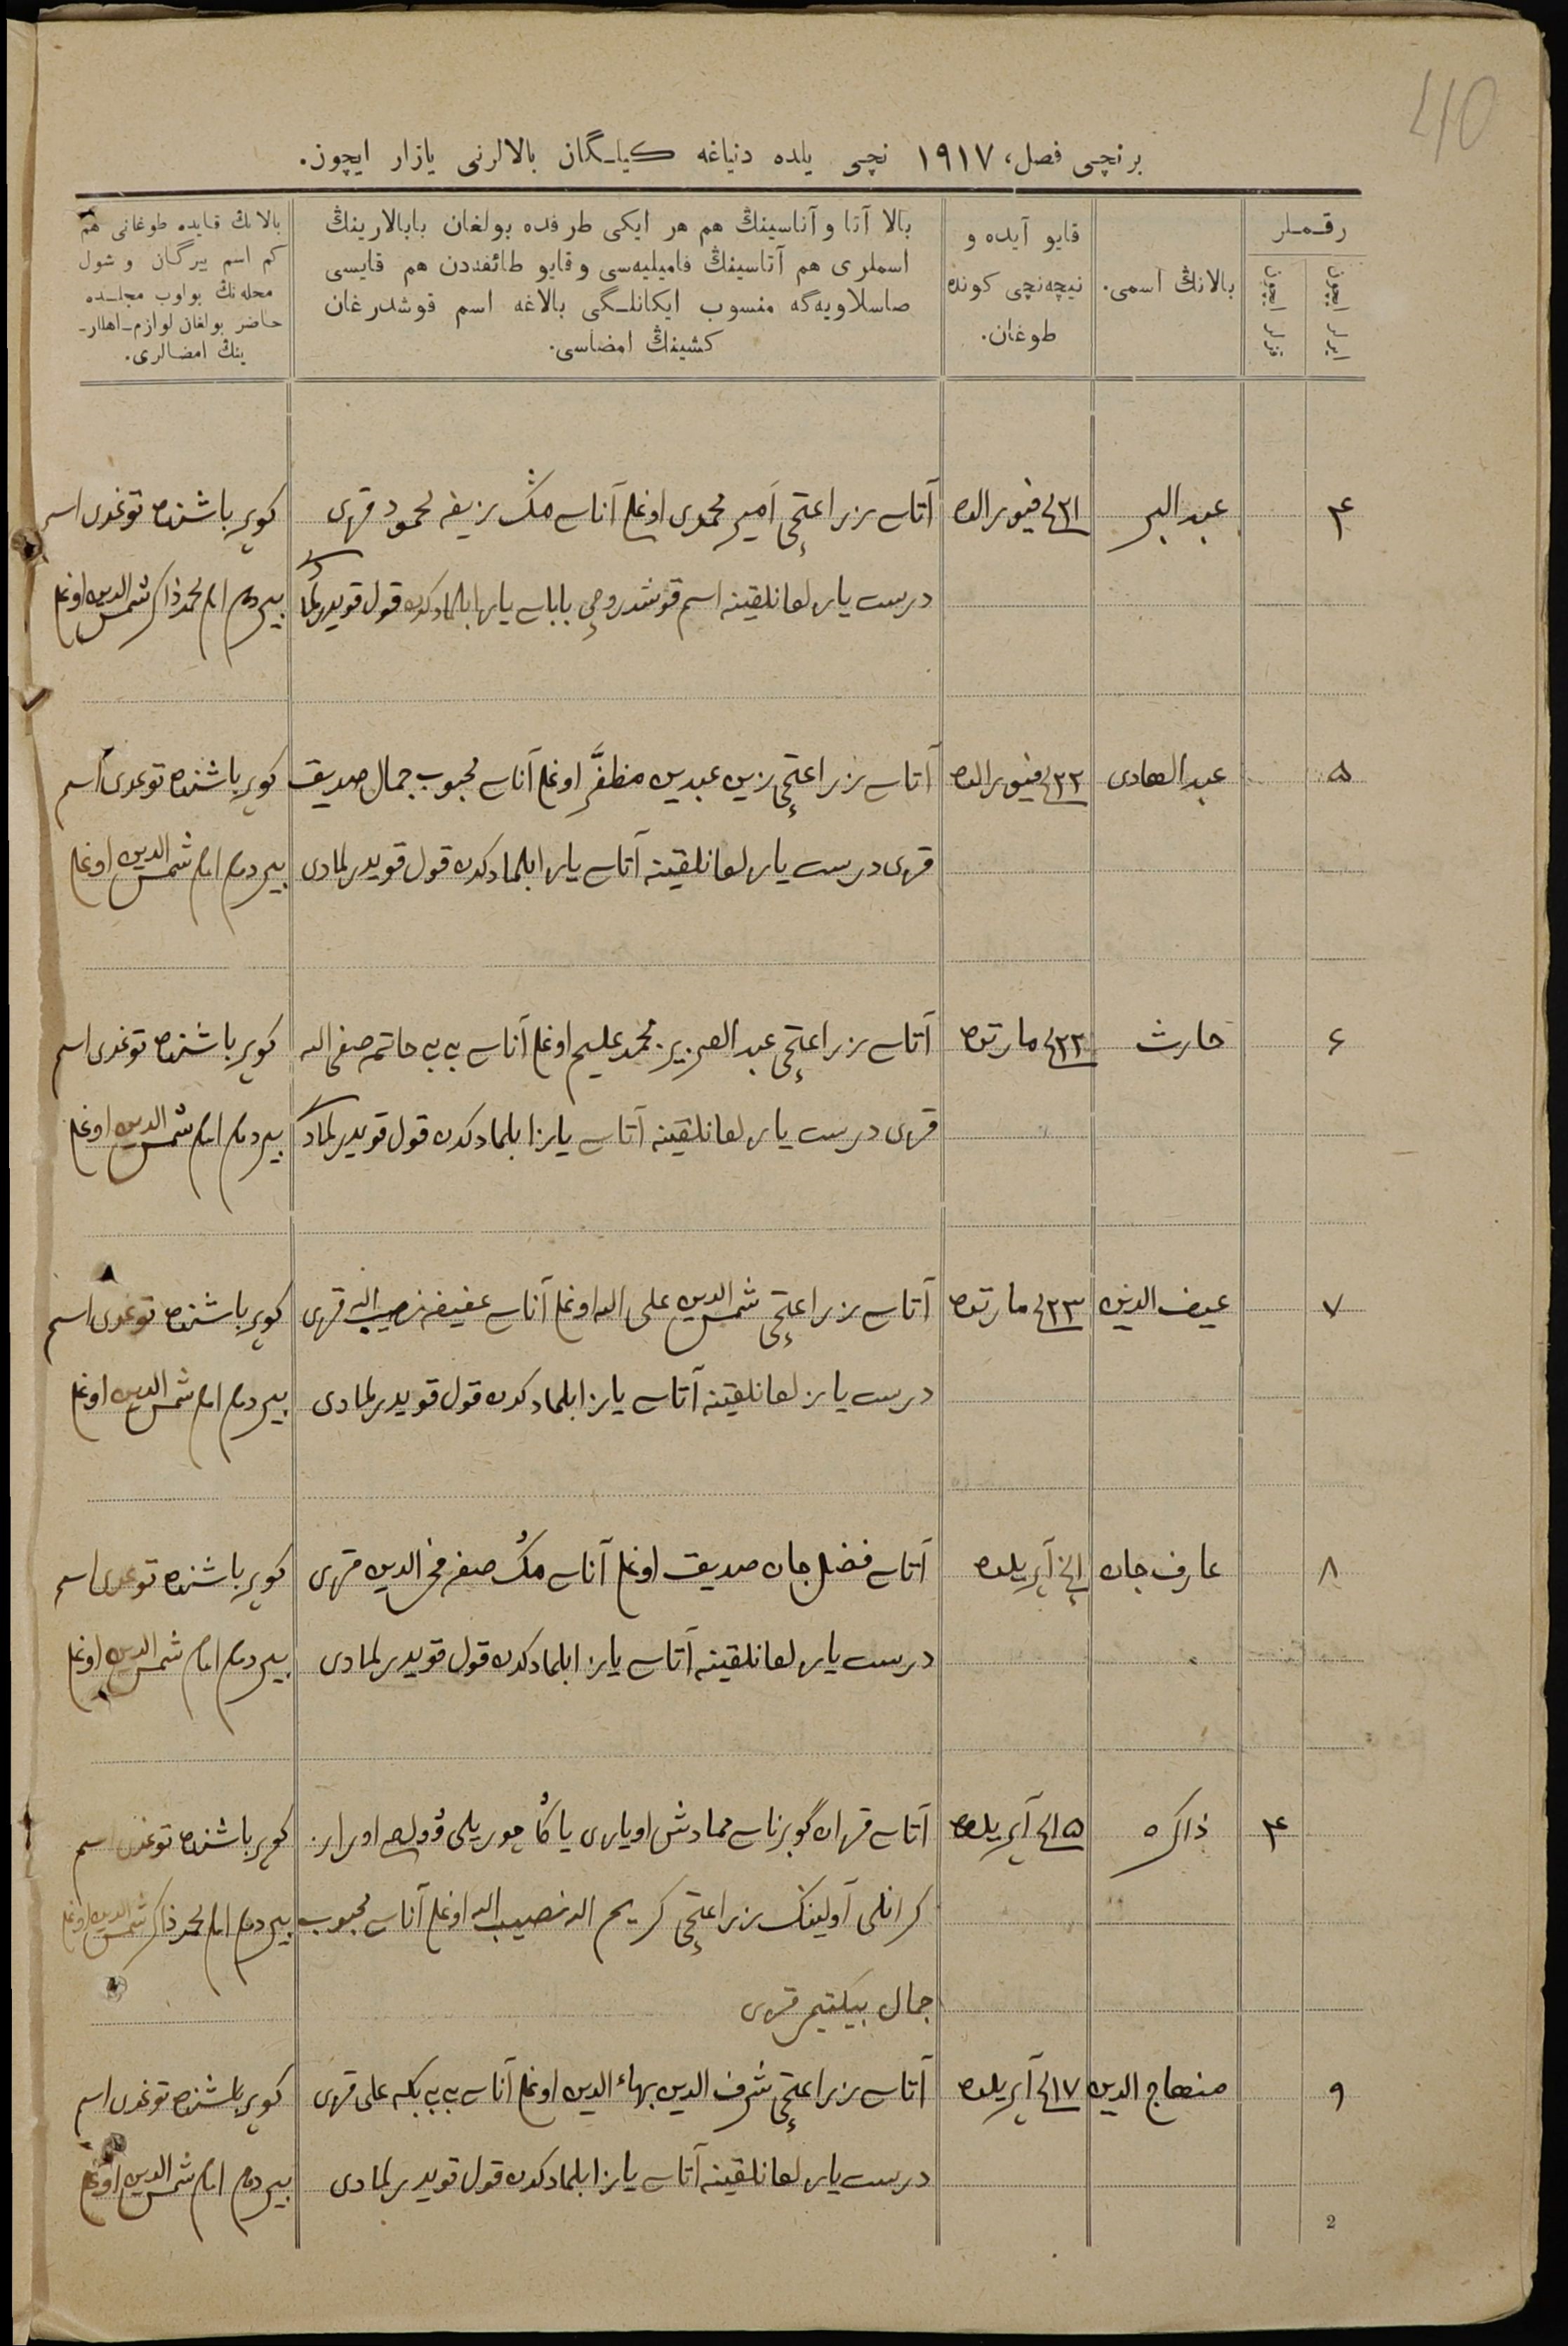 40
برنچی فصل، ١٩١٧ نچی یلده دنیاغه کیلـگان بالالرنی یازار ایچون.
رقـمـلر
ایرلر ایچون
قزلر ایچون
بالانڭ اسمی.
قایو آیده و
نیچه‌نچی کونده
طوغان.
بالا آتا و آناسینڭ هم هر ایکی طرفده بولغان بابالارینڭ
اسملری هم آتاسینڭ فامیلیه‌سی و قایو طائفه‌دن هم قایسی
صاسلاویه‌گه منسوب ایکانلـگی بالاغه اسم قوشدرغان
کشینڭ امضاسی.
بالانڭ قایده طوغانی هم
کم اسم بیرگان و شول
محله‌نڭ بولوب مجلـسده
حاضر بولغان لوازم-اهللر-
ینڭ امضالری.
۴
عبد البر
٢١ نچی فیورالده
آتاسی زراعتچی امیر محمدی اوغلی آناسی محمود قزی
درست یازلغانلقینه اسم قوشدروچی باباسی یازا بلمادکدن قول قویدرلمادی
کویرباشنده توغدی اسم
بیردم امام محمد ذاکر شمس الدین اوغلی
۵
عبد الهادی
٢٢ نچی فیورالده
آتاسی زراعتچی زین عبدین مظفر اوغلی آناسی محبوب جمال صدیق
قزی درست یازلغانلقینه آتاسی یازا بلمادکدن قول قویدرلمادی
کویرباشنده توغدی اسم
بیردم امام شمس الدین اوغلی
۶
حارث
٢٢ نچی مارتده
آتاسی زراعتچی عبد العزیز محمد علیم اوغلی آناسی بی بی حاتم صفی الله
قزی درست یازلغانلقینه آتاسی یازا بلمادکدن قول قویدرلمادی
کویرباشنده توغدی اسم
بیردم امام شمس الدین اوغلی
٧
عیف الدین
٢٣ نچی مارتده
آتاسی زراعتچی شمس الدین علی الله اوغلی آناسی عفیفه نصیب الله قزی
درست یازلغانلقینه آتاسی یازا بلمادکدن قول قویدرلمادی
کویرباشنده توغدی اسم
بیردم امام شمس الدین اوغلی
٨
عارف جان
١ نچی آپریلده
آتاسی فضل جان صدیق اوغلی آناسی فخر الدین قزی
درست یازلغانلقینه آتاسی یازا بلمادکدن قول قویدرلمادی
کویرباشنده توغدی اسم
بیردم امام شمس الدین اوغلی
۴
ذاکره
١۵ نچی آپریلده
آتاسی قزان گوبرناسی مامادش اویازی
آولینڭ زراعتچی کریم الله نصیب الله اوغلی آناسی محبوب
جمال بیکتیمر قزی
کویرباشنده توغدی اسم
بیردم امام محمد ذاکر شمس الدین اوغلی
٩
منهاج الدین
١٧ نچی آپریلده
آتاسی زراعتچی شرف الدین بهاء الدین اوغلی آناسی بی بی علی قزی
درست یازلغانلقینه آتاسی یازا بلمادکدن قول قویدرلمادی
کویرباشنده توغدی اسم
بیردم امام شمس الدین اوغلی
2